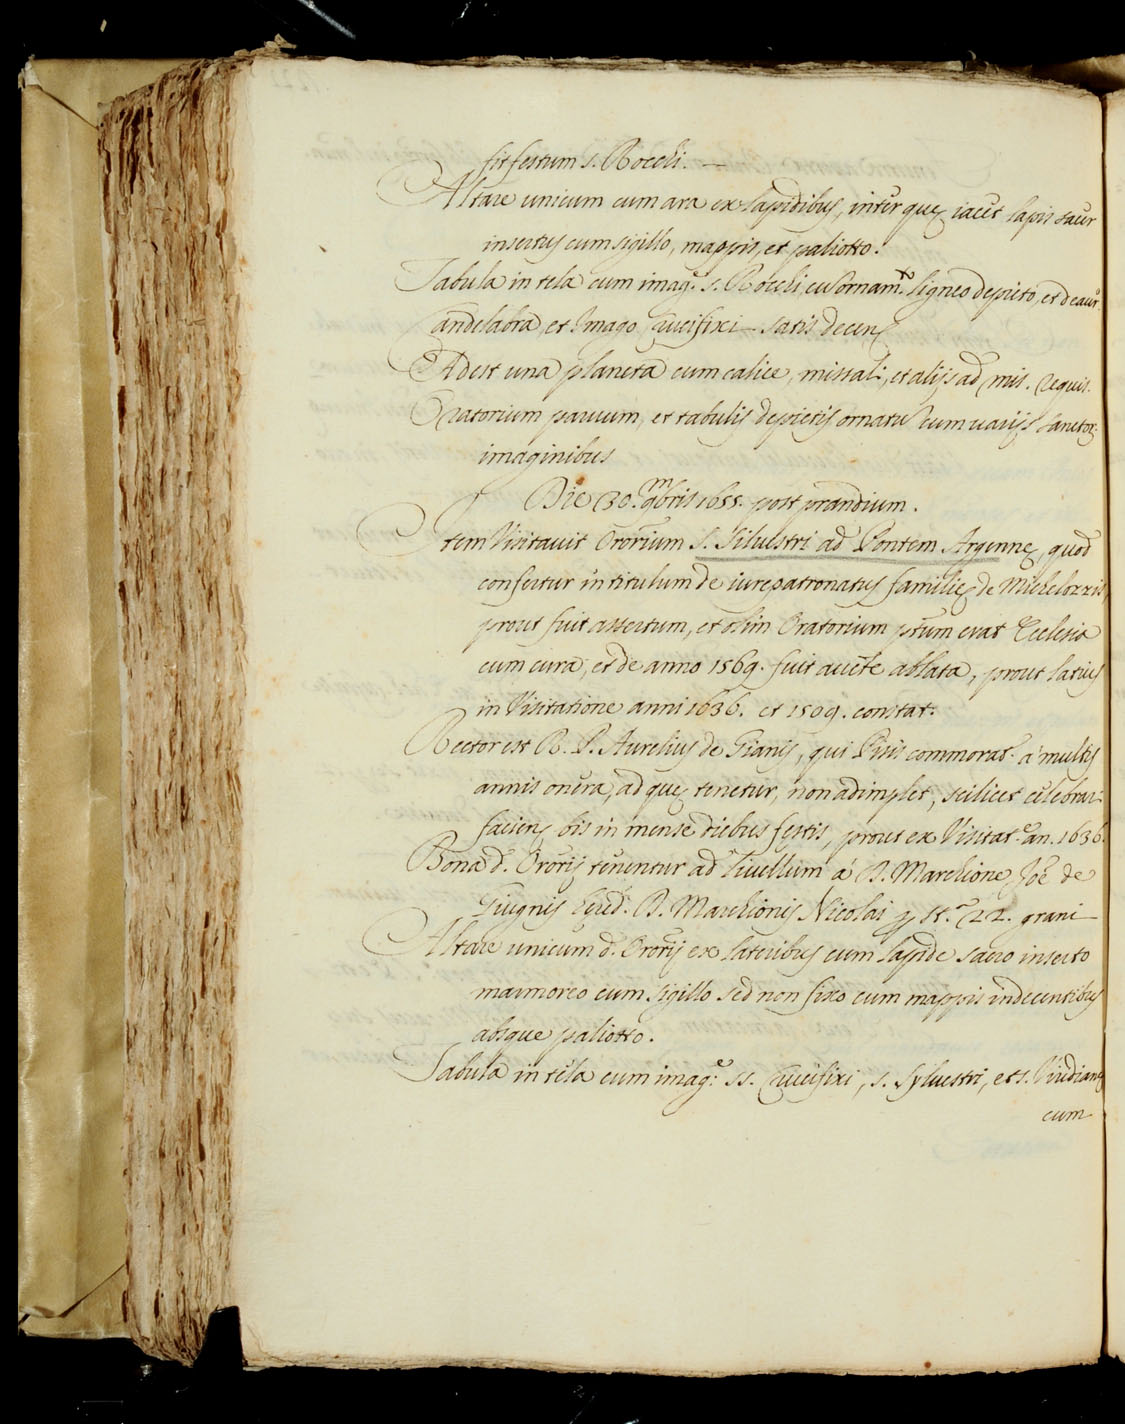 fit festum s. Rocchi. —
Altare unicum cum ara ex lapidibus, inter quę iacet lapis sacer
insertus cum sigillo, mappis, et paliotto.
Tabula in tela cum imag.e s. Rocchi, cu ornam.to ligneo depicto, et deaur.
Candelabra, et Imago Crucifixi satis decens
Adest una planeta cum calice, missali, et alijs ad mis. requis.
Oratorium paruum, et tabulis depictis ornatu cum uarijs sanctor.
imaginibus
Die 30. 9mbris 1655. post prandium.
Item Visitauit Ororium S. Siluestri ad Pontem Argennę, quod
confertur in titulum de iurepatronatus familię de Michelozzis,
prout fuit assertum, et olim Oratorium ptum erat Ecclesia
cum cura, et de anno 1569. fuit aucte ablata, prout latius
in Visitatione anni 1636. et 1509. constat.
Rector est R. P. Aurelius de Gianis, qui Pisis commorat. a' multis
annis onera, ad quę tenetur, non adimplet, scilicet celebrar
faciens bis in mense diebus festis, prout ex Visitat.e an. 1636.
Bona d. Ororij tenentur ad liuellum a' D. Marchione Joe de
Giugnis D. Marchionis Nicolai p st.a 22. grani
Altare unicum d. Ororij ex lateribus cum lapide sacro inserto
marmoreo cum sigillo sed non fixo cum mappis indecentibus
absque paliotto.
Tabula in tela cum imag.e ss. Crucifixi, s. Syluestri, et s. Viridianę
cum